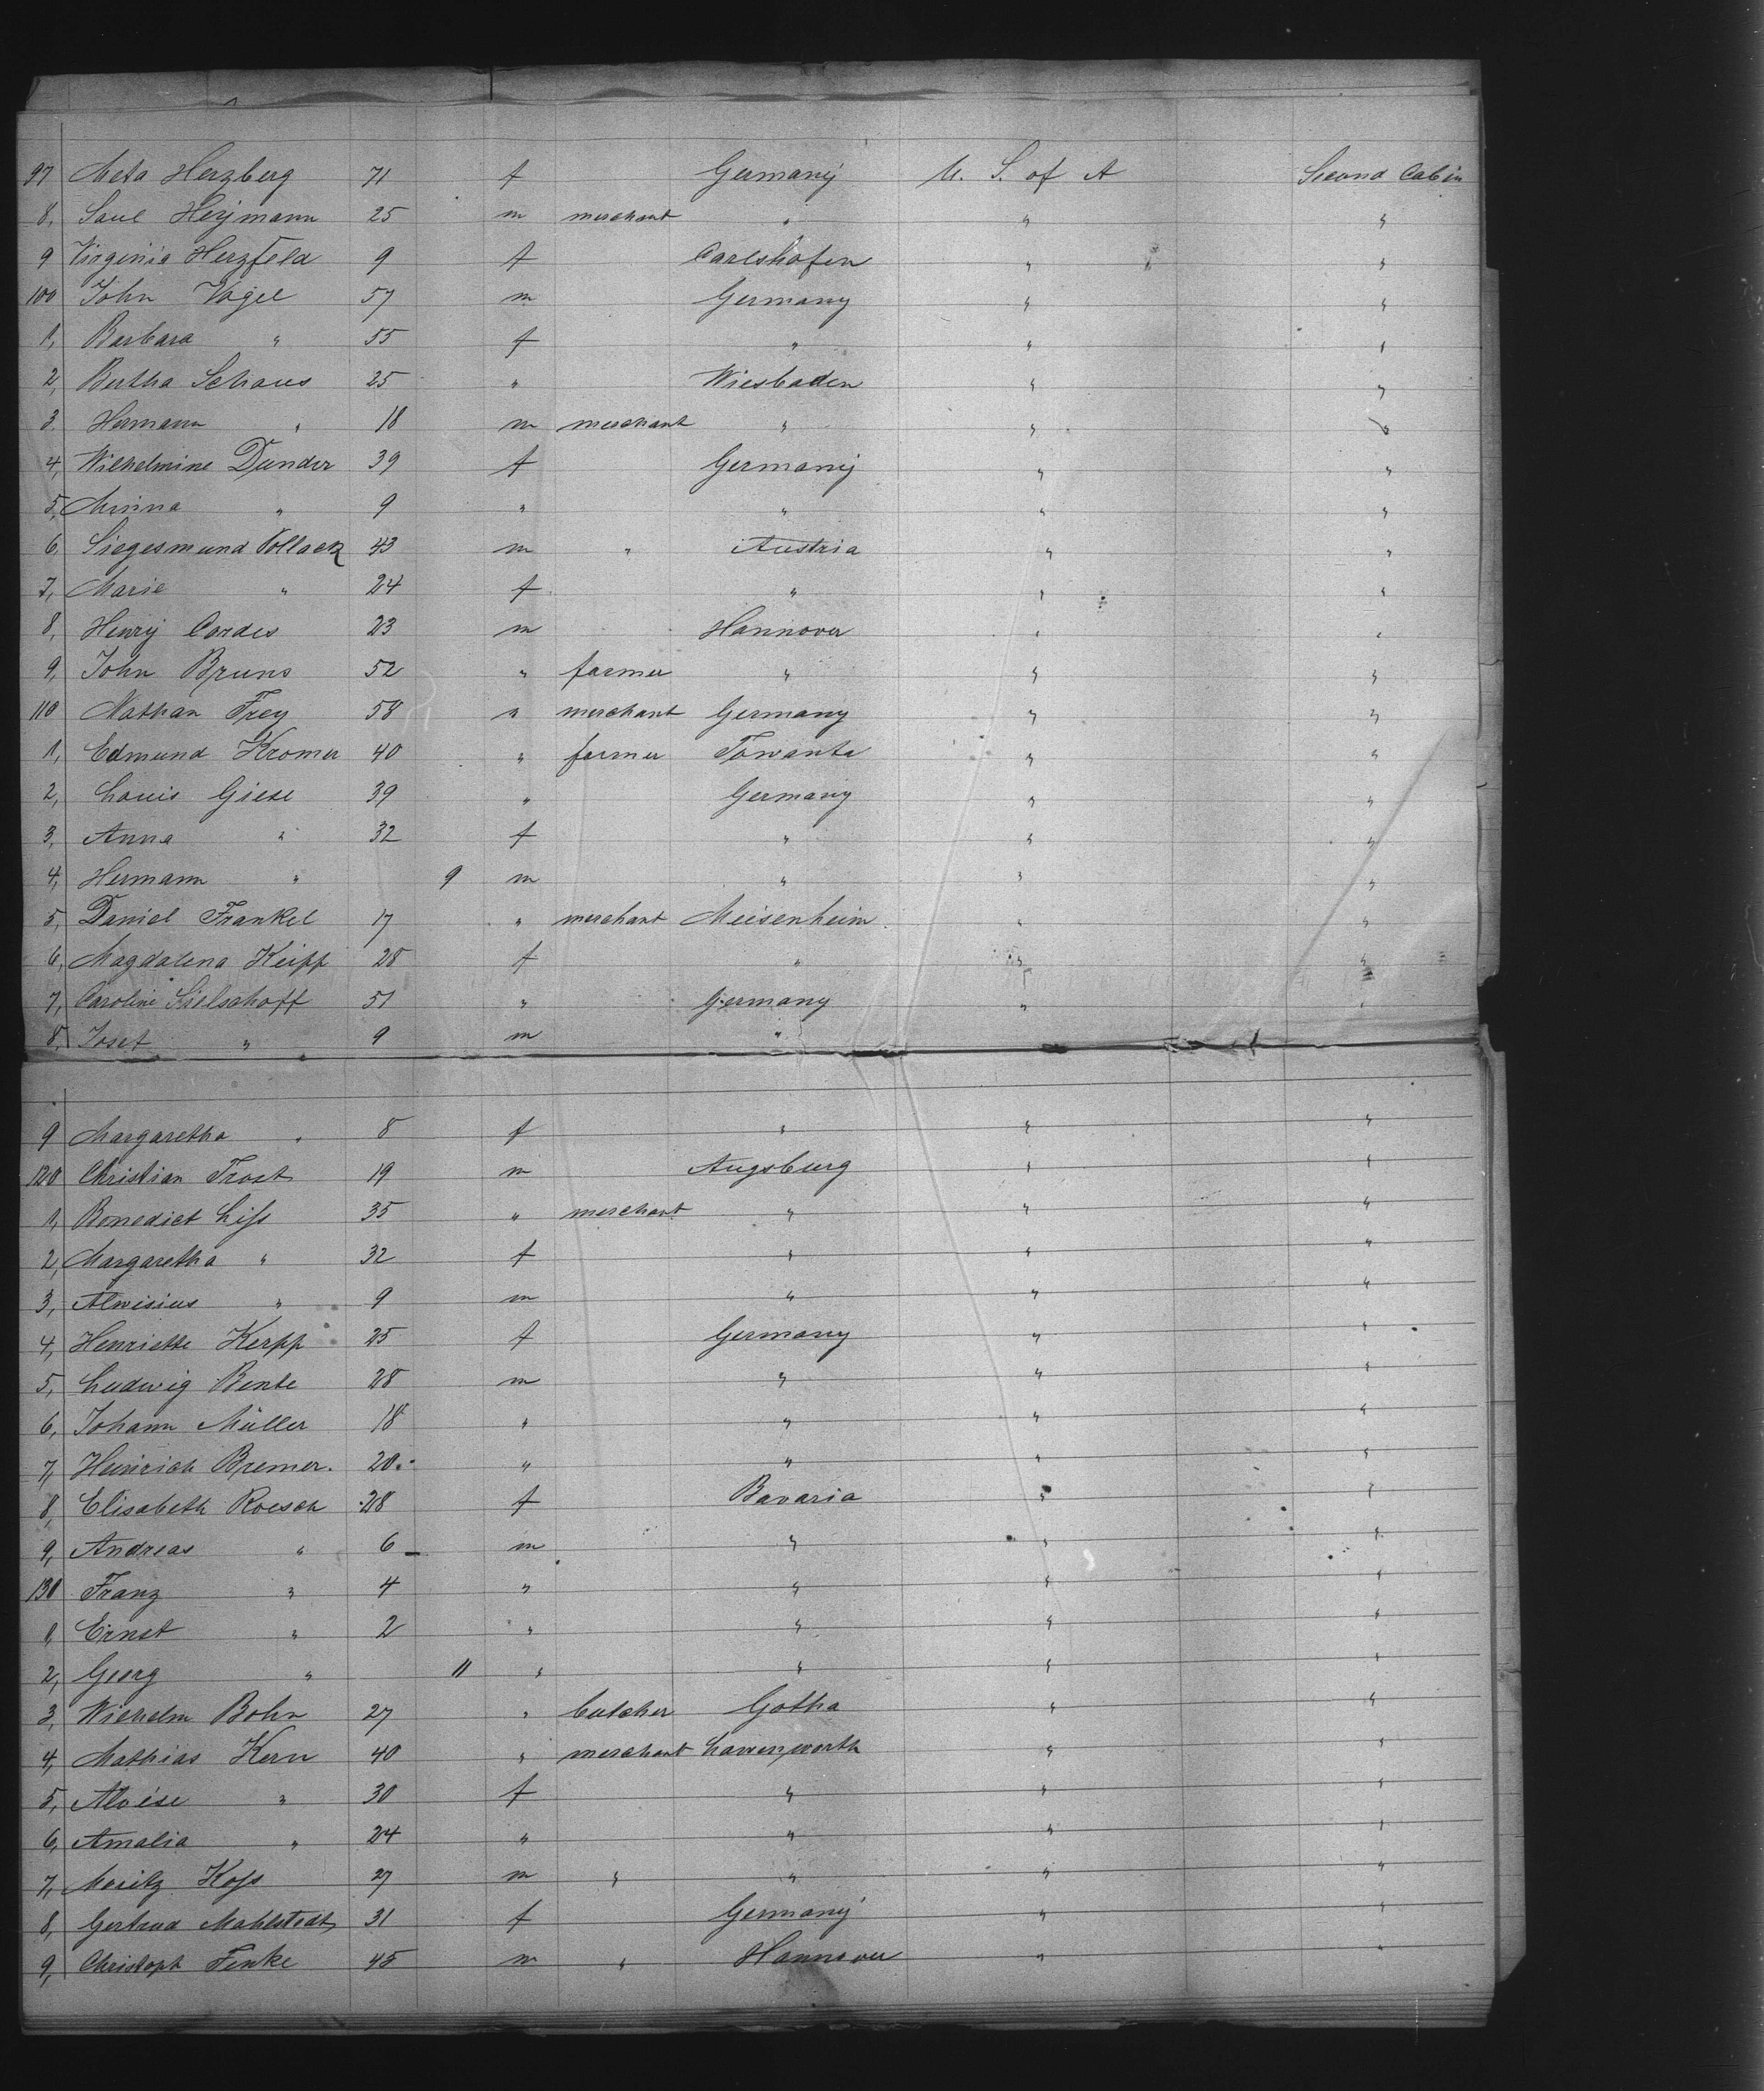 97 Meta Herzberg 71 f Germany U. S. of A Second Cabin
8, Saul Heymann 25 m merchant " " "
9 Virginia Herzfeld 9 f Carlshafen " "
100 John Vogel 57 m Germany " "
1, Barbara " 55 f " " "
2, Bertha Schaus 25 " Wiesbaden " "
3 Hermann " 18 m merchant " " "
4, Wilhelmine Dunder 39 f Germany " "
5, Minna " 9 " " " "
6, Siegesmund Pollack 43 m " Austria " "
7, Marie " 24 f " " "
8, Henry Cordes 23 m Hannover " "
9, John Bruns 52 " farmer " " "
110 Nathan Frey 58 " merchant Germany " "
1, Edmund Kromer 40 " farmer Towanta " "
2, Louis Giese 39 " Germany " "
3, Anna " 32 f " " "
4, Hermann " 9 m " " "
5, Daniel Frankel 17 " merchant Meisenheim " "
6, Magdalena Keipp 28 f " " "
7, Caroline Sielschoff 51 " Germany " "
8, Josef " 9 m "
9 Margaretha " 8 f " " "
120 Christian Trost 19 m Augsburg " "
1, Benedict Liss 35 " merchant " " "
2, Margaretha " 32 f " " "
3, Alwisius " 9 m " " "
4, Henriette Kerpp 25 f Germany " "
5, Ludwig Bente 28 m " " "
6, Johann Müller 18 " " " "
7, Heinrich Bremer. 20 " " " "
8, Elisabeth Roesch 28 f Bavaria " "
9, Andreas " 6 m " " "
130 Franz " 4 " " " "
1, Ernst " 2 " " " "
2, Georg " 11 " " " "
3, Wilhelm Bohn 27 " butcher Gotha " "
4, Mathias Kern 40 " merchant Lawenworth " "
5, Aloise " 30 f " " "
6, Amalia " 24 " " " "
7, Moritz Koss 27 m " " " "
8, Gertrud Mahlstedt 31 f Germany " "
9, Christoph Finke 45 m " Hannover " "